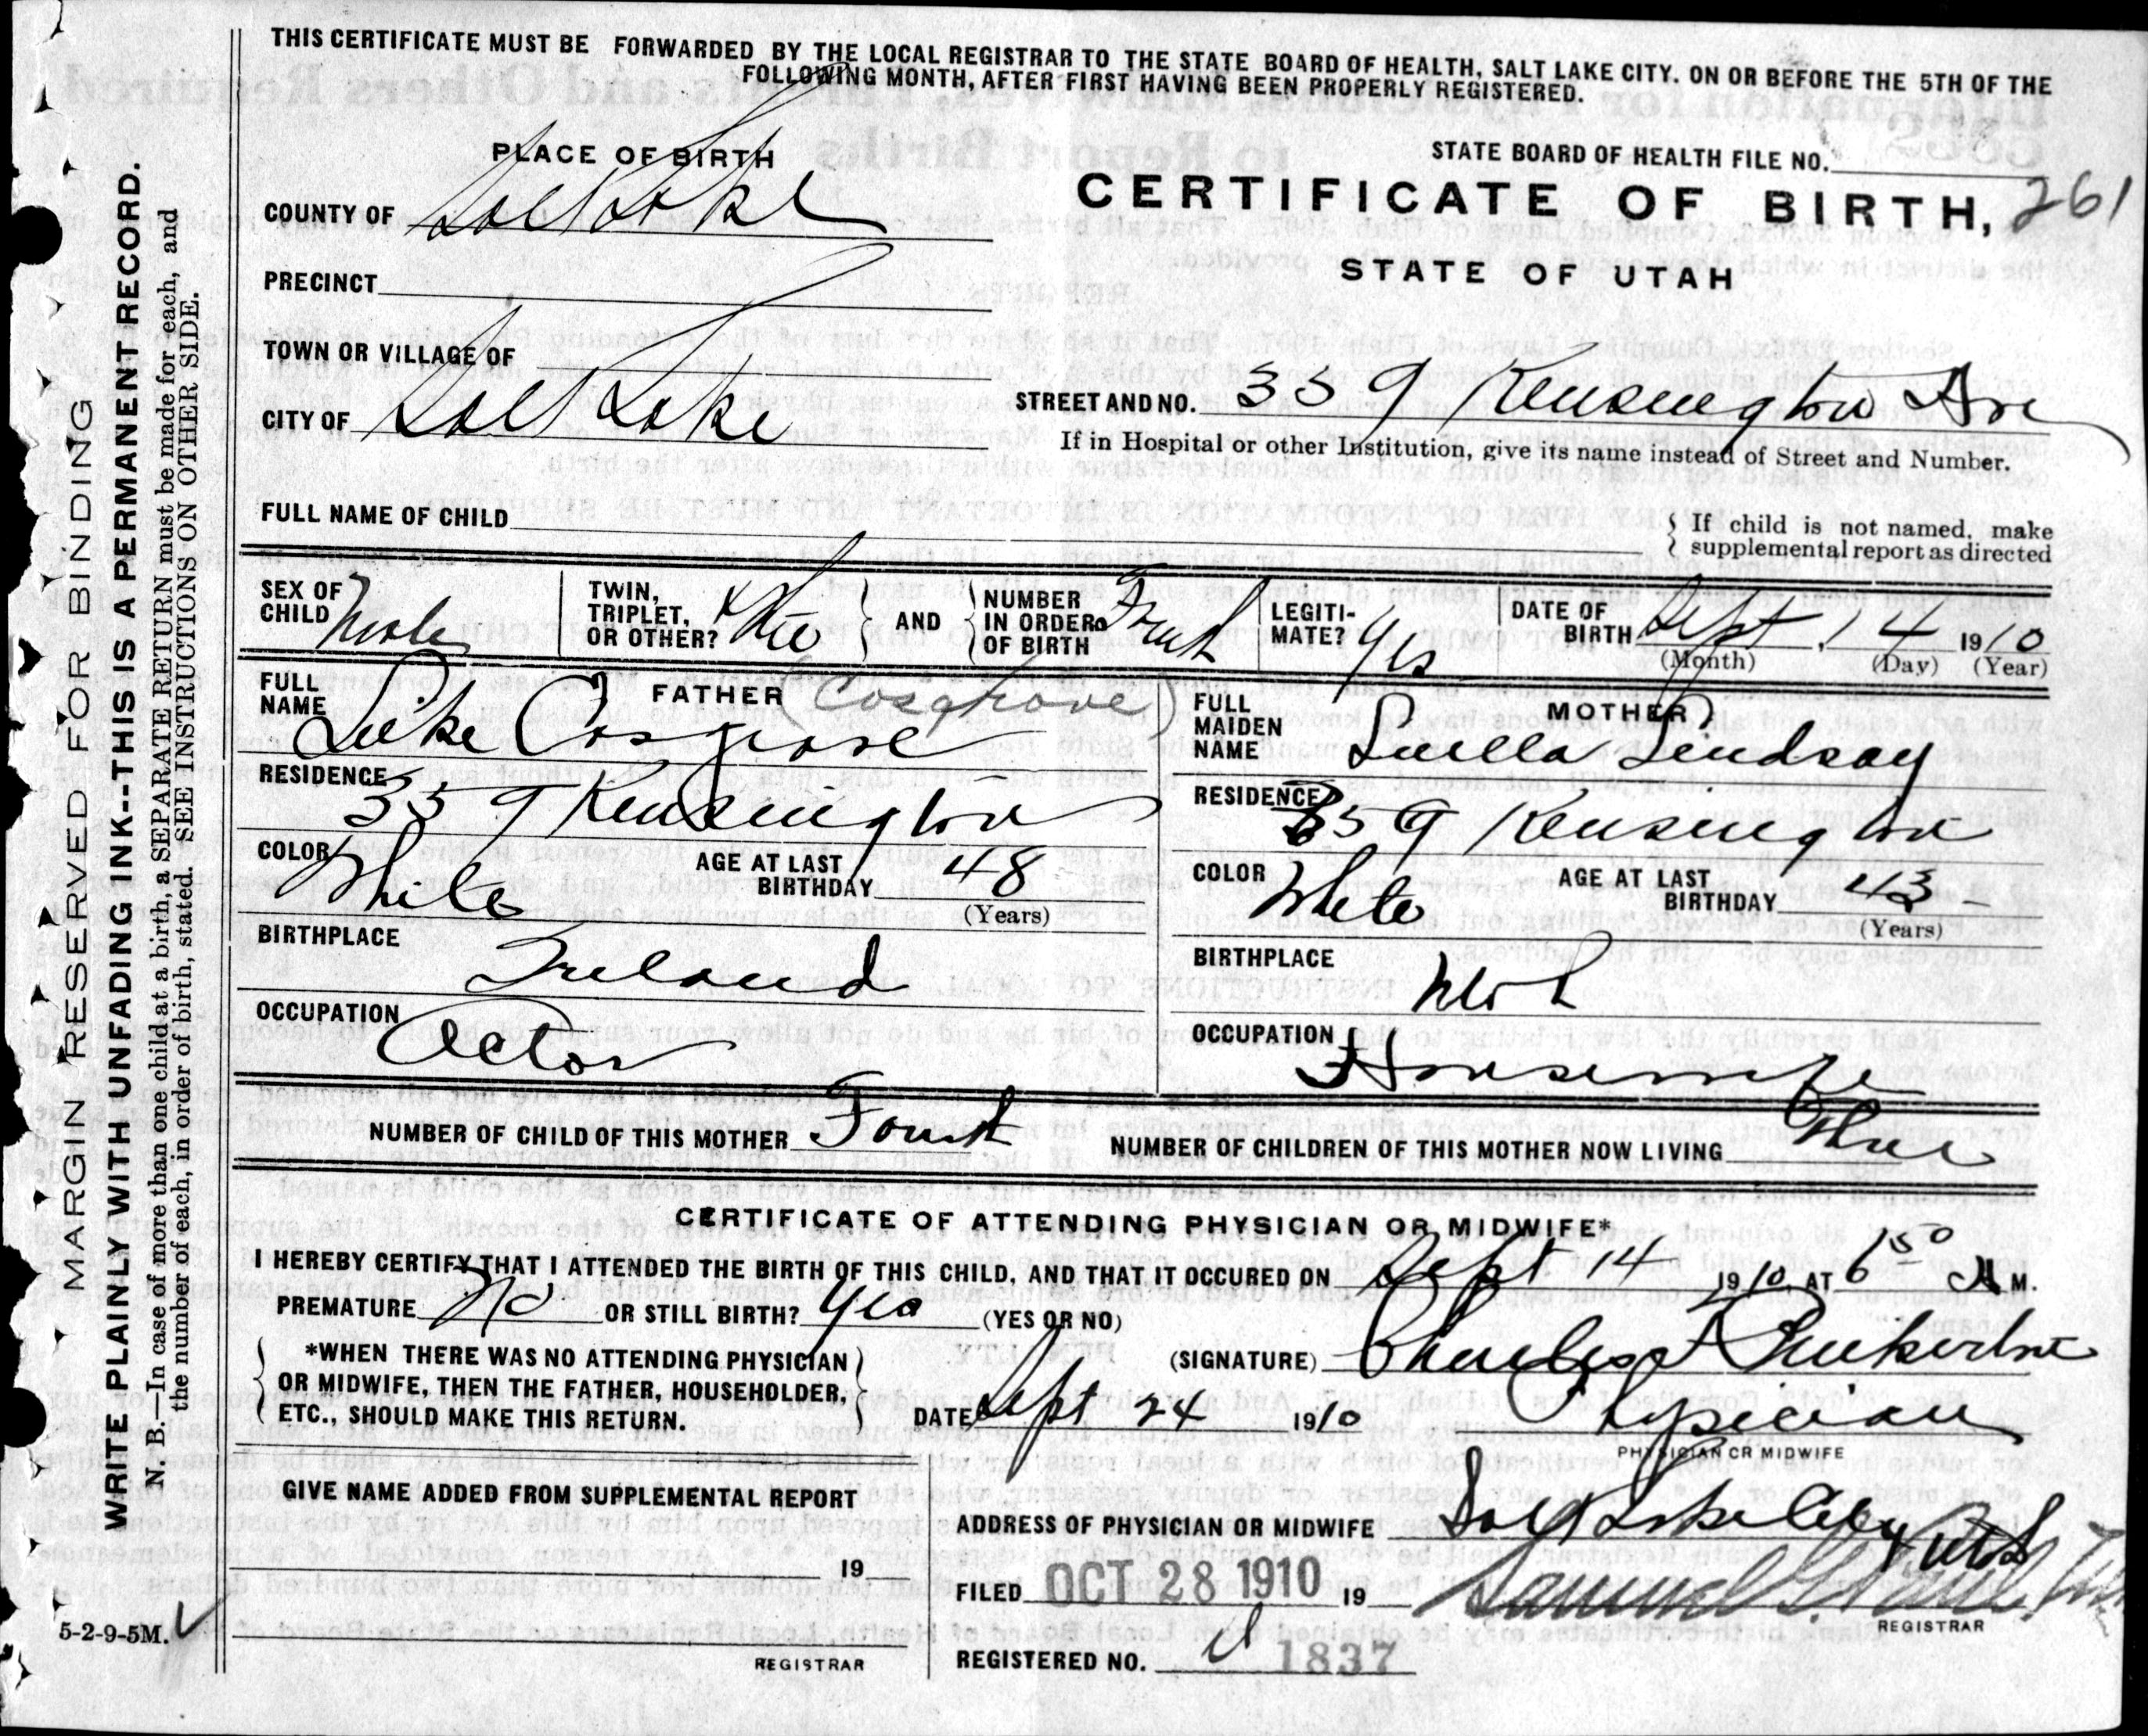 THIS CERTIFICATE MUST BE FORWARDED BY THE LOCAL REGISTRAR TO THE STATE BOARD OF HEALTH, SALT LAKE CITY. ON OR BEFORE THE 5TH OF THE
FOLLOWING MONTH, AFTER FIRST HAVING BEEN PROPERLY REGISTERED.
PLACE OF BIRTH
STATE BOARD OF HEALTH FILE NO.
COUNTY OF Salt Lake
CERTIFICATE OF BIRTH, 261
PRECINCT
STATE OF UTAH
TOWN OR VILLAGE OF
CITY OF Salt Lake
STREET AND NO. 359 Kensington Ave
If in Hospital or other Institution, give its name instead of Street and Number.
FULL NAME OF CHILD
If child is not named, make
supplemental report as directed
SEX OF CHILD Male
TWIN, TRIPLET, OR OTHER?
AND
NUMBER IN ORDER OF BIRTH Fourth
LEGITIMATE? Yes
DATE OF BIRTH Sept, 14 1910
(Month) (Day) (Year)
FATHER (Cosgrove)
FULL NAME Luke Cosgrave
MOTHER
FULL MAIDEN NAME Luella Lindsay
RESIDENCE 359 Kensington
RESIDENCE 359 Kensington
COLOR White AGE AT LAST BIRTHDAY 48 (Years)
COLOR White AGE AT LAST BIRTHDAY 43 (Years)
BIRTHPLACE Ireland
BIRTHPLACE Utah
OCCUPATION Actor
OCCUPATION Housewife
NUMBER OF CHILD OF THIS MOTHER Fourth
NUMBER OF CHILDREN OF THIS MOTHER NOW LIVING Three
CERTIFICATE OF ATTENDING PHYSICIAN OR MIDWIFE*
I HEREBY CERTIFY THAT I ATTENDED THE BIRTH OF THIS CHILD, AND THAT IT OCCURED ON Sept 14 1910, AT 6 50 A M.
PREMATURE No OR STILL BIRTH? Yes (YES OR NO)
*WHEN THERE WAS NO ATTENDING PHYSICIAN
OR MIDWIFE, THEN THE FATHER, HOUSEHOLDER,
ETC., SHOULD MAKE THIS RETURN.
(SIGNATURE) Charles F
DATE Sept 24 1910
Physician
PHYSICIAN OR MIDWIFE
GIVE NAME ADDED FROM SUPPLEMENTAL REPORT
ADDRESS OF PHYSICIAN OR MIDWIFE Salt Lake City Utah
19
FILED OCT 28 1910 19 Samuel G.
REGISTRAR
REGISTRAR
REGISTERED NO. 1837
5-2-9-5M.
MARGIN RESERVED FOR BINDING
WRITE PLAINLY WITH UNFADING INK--THIS IS A PERMANENT RECORD.
N. B.—In case of more than one child at a birth, a SEPARATE RETURN must be made for each, and
the number of each, in order of birth, stated. SEE INSTRUCTIONS ON OTHER SIDE.